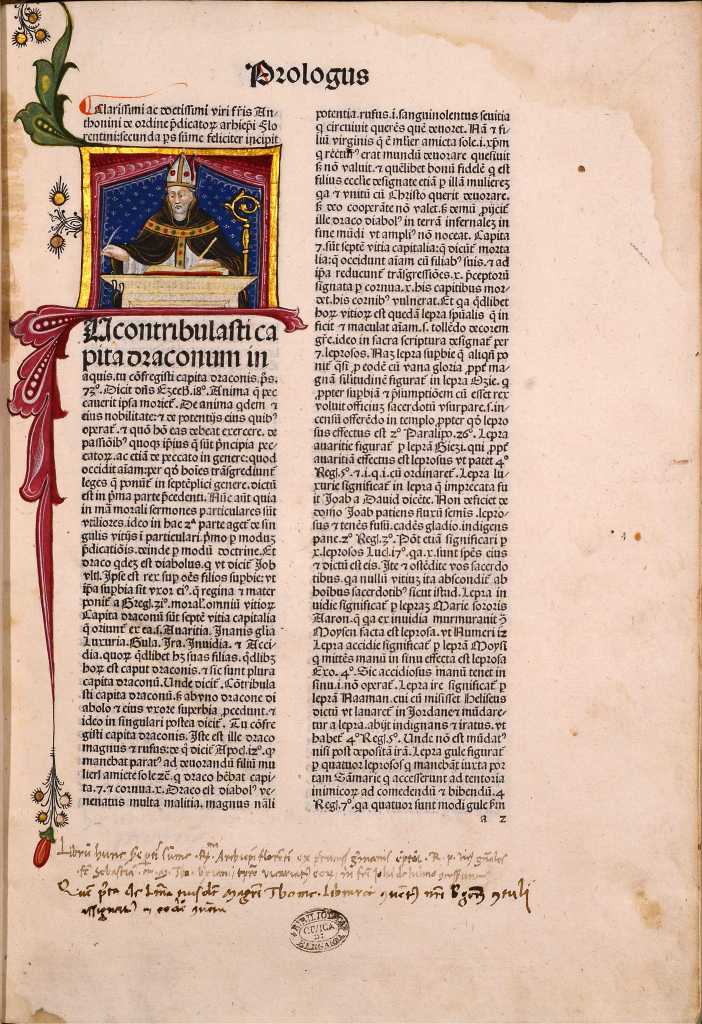 Prologus
Clarissimi ac doctissimi viri fr̄is An-
thonini de ordine p̄dicatoꝝ archiep̄i Flo
rentini: secunda ps sūme feliciter incipit
contribulasti ca
pita draconum in
aquis. tu cōfregisti capita draconis. ps.
73º. Dicit dn̄s Ezech. 18º. Anima q̄ pec
cauerit ipsa moriet᷑. De anima qdem ⁊
eius nobilitate: ⁊ de potentijs eius quibꝰ
operat᷑. ⁊ quō hō eas debeat exercere. de
passiōibꝰ quoqꝫ ip̄ius q̄ sūt p̄ncipia pec
catoꝝ. ac etiā de peccato in genere: quod
occidit aīam: per qd̄ hoīes trāsgrediunt᷑
leges q̄ ponūt᷑ in septēplici genere. dictū
est in p̄ma parte p̄cedenti. Nūc aūt quia
in mā morali sermones particulares sūt
vtiliores. ideo in hac 2ª parte aget᷑ de sin
gulis vitijs i particulari. p̄mo p modū
p̄dicatiōis. deinde p modū doctrine. Et
draco qdez est diabolus. q vt dicit᷑ Job
vlti. Ipse est rex sup oēs filios supbie: vt
ipa supbia sit vxor eiꝰ. q̄ regina ⁊ mater
ponit᷑ a Greg. 31º. moral. omniū vitioꝝ
Capita draconū sūt septē vitia capitalia
q̄ oriunt᷑ ex ea. s. Auaritia. Inanis gl̄ia
Luxuria. Gula. Ira. Inuidia. ⁊ Acci
dia. quoꝝ qdlibet hꝫ suas filias. qdlibꝫ
hoꝝ est caput draconis. ⁊ sic sunt plura
capita draconū. Unde dicit᷑. Cōtribula
sti capita draconū. sꝫ ab vno dracone di
abolo ⁊ eius vxore superbia p̄cedunt. ⁊
ideo in singulari postea dicit᷑. Tu cōfre
gisti capita draconis. Iste est ille draco
magnus ⁊ rufus: de q̄ dicit᷑ Apocl. 12º. q̄
manebat parat᷑ ad deuorandū filiū mu
lieri amicte sole zē. q draco hēbat capi-
ta. 7. ⁊ cornua. x. Draco est diabolꝰ ve-
nenatus multa malitia. magnus nāli
potentia. rufus. i. sanguinolentus seuitia
q circuiuit querēs quē deuoret. Nā ⁊ fi-
liū virginis q̄ ē mlier amicta sole. i. xp̄m
q recturꝰ erat mundū deuorare quesiuit
sꝫ nō valuit. ⁊ quēlibet bonū fidelē q est
filius ecclīe designate etiā p illā mulierez
q̄ ⁊ vnitū cū Christo querit deuorare.
sꝫ deo cooperāte nō valet. sꝫ demū pijciet᷑
ille draco diabolꝰ in terrā infernalez in
fine mūdi vt ampliꝰ nō noceat. Capita
⁊ sūt septē vitia capitalia: q̄ dicūt᷑ morta
lia: q̄ occidunt aīam cū filiabꝰ suis. ⁊ ad
ip̄a reducunt᷑ trāsgressiōes. x. p̄ceptorū
signata p cornua. x. his capitibus mor-
det. his cornibꝰ vulnerat. Et qa qdlibet
hoꝝ vitioꝝ est quedā lepra spūalis q̄ in
ficit ⁊ maculat aīam. s. tollēdo decorem
gr̄e. ideo in sacra scriptura designat᷑ per
⁊ leprosos. Naz lepra supbie q̄ aliqn̄ po
nit᷑ qsi p eodē cū vana gloria. ppt᷑ mag
nā silitudinē figurat᷑ in lepra Ozie. q
ppter supbiā ⁊ p̄sumptionēz cū esset rex
voluit officiuz sacerdotū vsurpare. s. in-
censū offerēdo in templo. ppter qd̄ lepro
sus effectus est 2º Paralipo. 26º. Lepra
auaritie figurat᷑ p lepram Giezi. qui ppt᷑
auaritiā effectus est leprosus vt patet 4º
Regl. 5º. ⁊ .i. q. i. cū ordinaret᷑. Lepra lu-
xurie significat᷑ in lepra q̄ imprecata fu
it Joab a Dauid dicēte. Non deficiet de
domo Joab patiens fluxū semīs. lepro-
sus ⁊ tenēs fusū. cadēs gladio. indigens
pane. 2º Regl. 3º. Pōt etiā significari p
x. leprosos Luc. 17º. qa. x. sunt spēs eius
⁊ dictū est eis. Ite ⁊ oſtēdite vos sacerdo
tibus. qa nullū vitiuz ita abscondit᷑ ab
hoībus sacerdotibꝰ sicut istud. Lepra in
uidie significat᷑ p lepraz Marie sororis
Aaron. q̄ qa ex inuidia murmurauit ꝯ
Moysen facta est leprosa. vt Numeri 12
Lepra accidie significat᷑ p lepra Moysi
q mittēs manū in sinu effecta est leprosa
Exo. 4º. Sic accidiosus manū tenet in
sinu. i. nō operat᷑. Lepra ire significat᷑ p
lepra Naaman. cui cū misisset Heliseus
dictū vt lauaret᷑ in Jordane ⁊ mūdare-
tur a lepra. abijt indignans ⁊ iratus. vt
habet᷑ 4º Regl. 5º. Unde nō est mūdatꝰ
nisi post depositā irā. Lepra gule figurat᷑
p quatuor leprosos q manebāt iuxta por
tam Samarie q accesserunt ad tentoria
inimicoꝝ ad comedendū ⁊ bibendū. 4
Regl. 7º. qa quatuor sunt modi gule s̄m
a 2
BIBLIOTECA
CIVICA
DI
BERGAMO